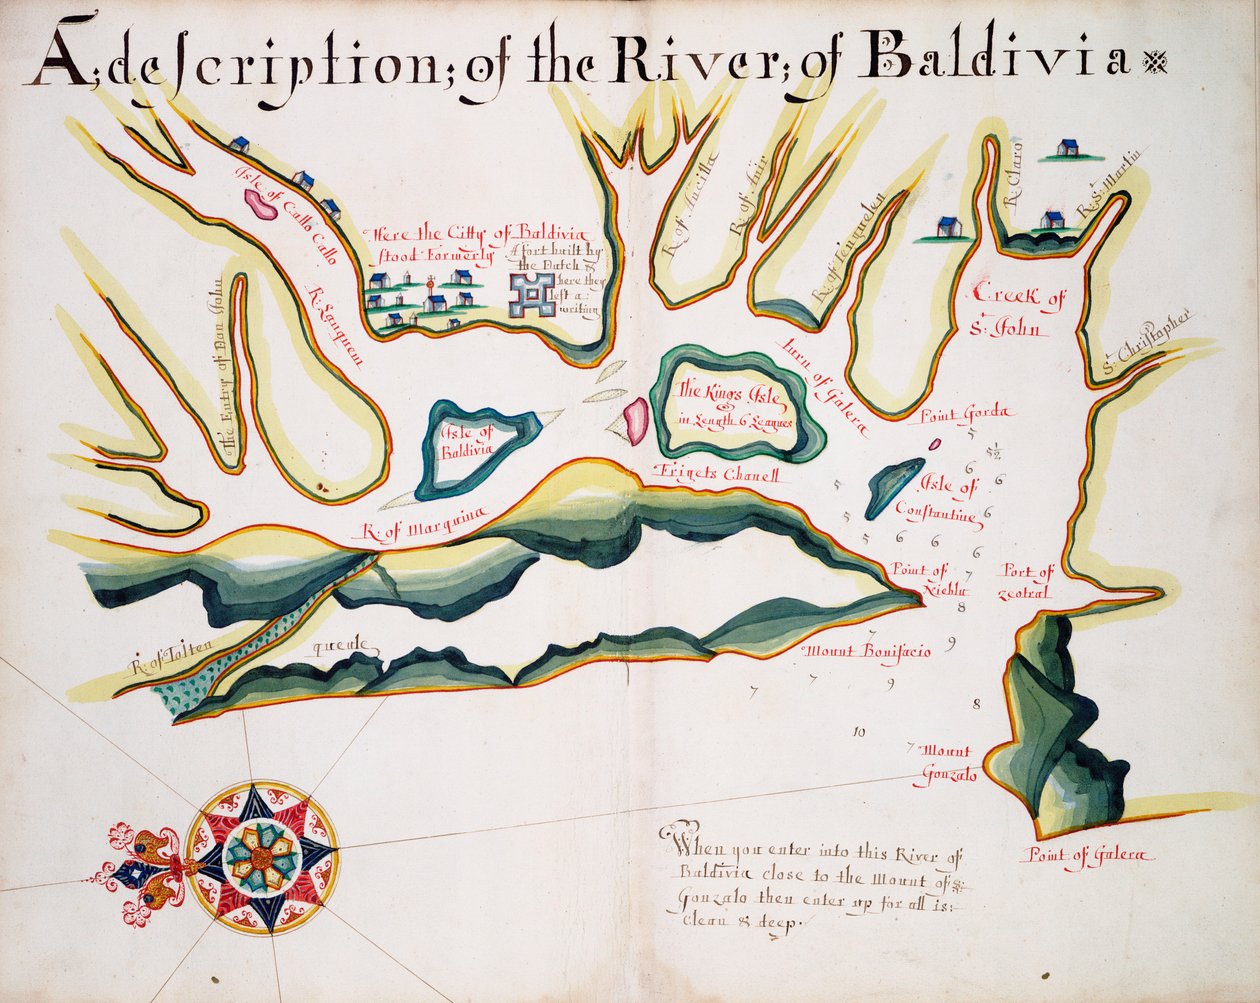 A; description; of the River; of Baldivia
Isle of Callo Callo
Here the Citty of Baldivia
stood Formerly
A fort built by
the Dutch &
here they
left a
writing
R. of Ancilla
R. of Anir
R. of Tenguelen
R. Claro
R. St. Martin
R. Sanquem
The Entry of Don John
Creek of
St. John
St. Christopher
turn of Galera
The Kings Isle
in Length 6 Leagues
Isle of
Baldivia
Frigets Chanell
Point Gorda
Isle of
Constantine
R. of Marquina
5
5½
6
6
6
5
5
5
6
6
6
7
8
9
7
7
7
9
8
10
7
Point of
Niebla
Port of
R. of Tolten
queule
Mount Bonifacio
Mount
Gonzalo
Point of Galera
When you enter into this River of
Baldivia close to the Mount of S:
Gonzalo then enter up for all is:
Clean & deep.